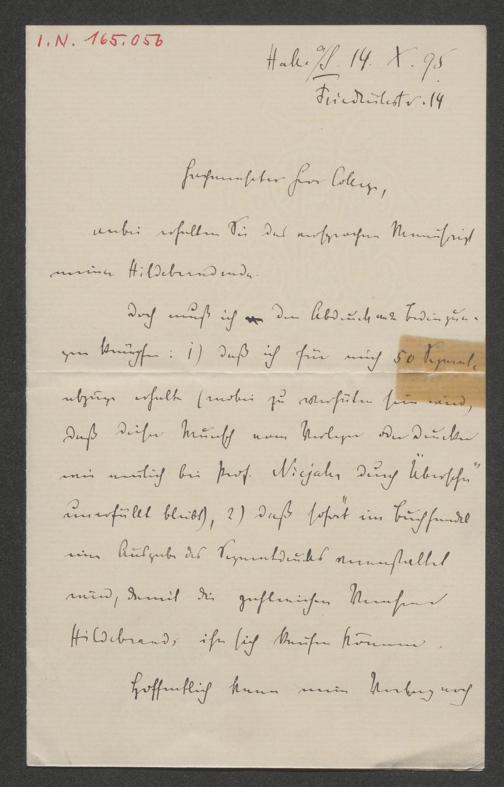 I.N. 165.056
Halle a/S. 14. X. 95
Friedrichstr. 14
Hochverehrter Herr College,
anbei erhalten Sie das versprochene Manuskript
meiner Hildebrandrede.
Doch muß ich den Abdruck an 2 Bedingun-
gen knüpfen: 1) daß ich für mich 50 Separat-
abzüge erhalte (wobei zu verhüten sein wird,
daß dieser Wunsch vom Verleger oder Drucker
wie neulich bei Prof. durch "Übersehn"
unerfüllt bleibt), 2) daß sofort im Buchhandel
eine Ausgabe des Separatdrucks veranstaltet
wird, damit die zahlreichen Verehrer
Hildebrands ihn sich kaufen können.
Hoffentlich kann mein Vortrag noch